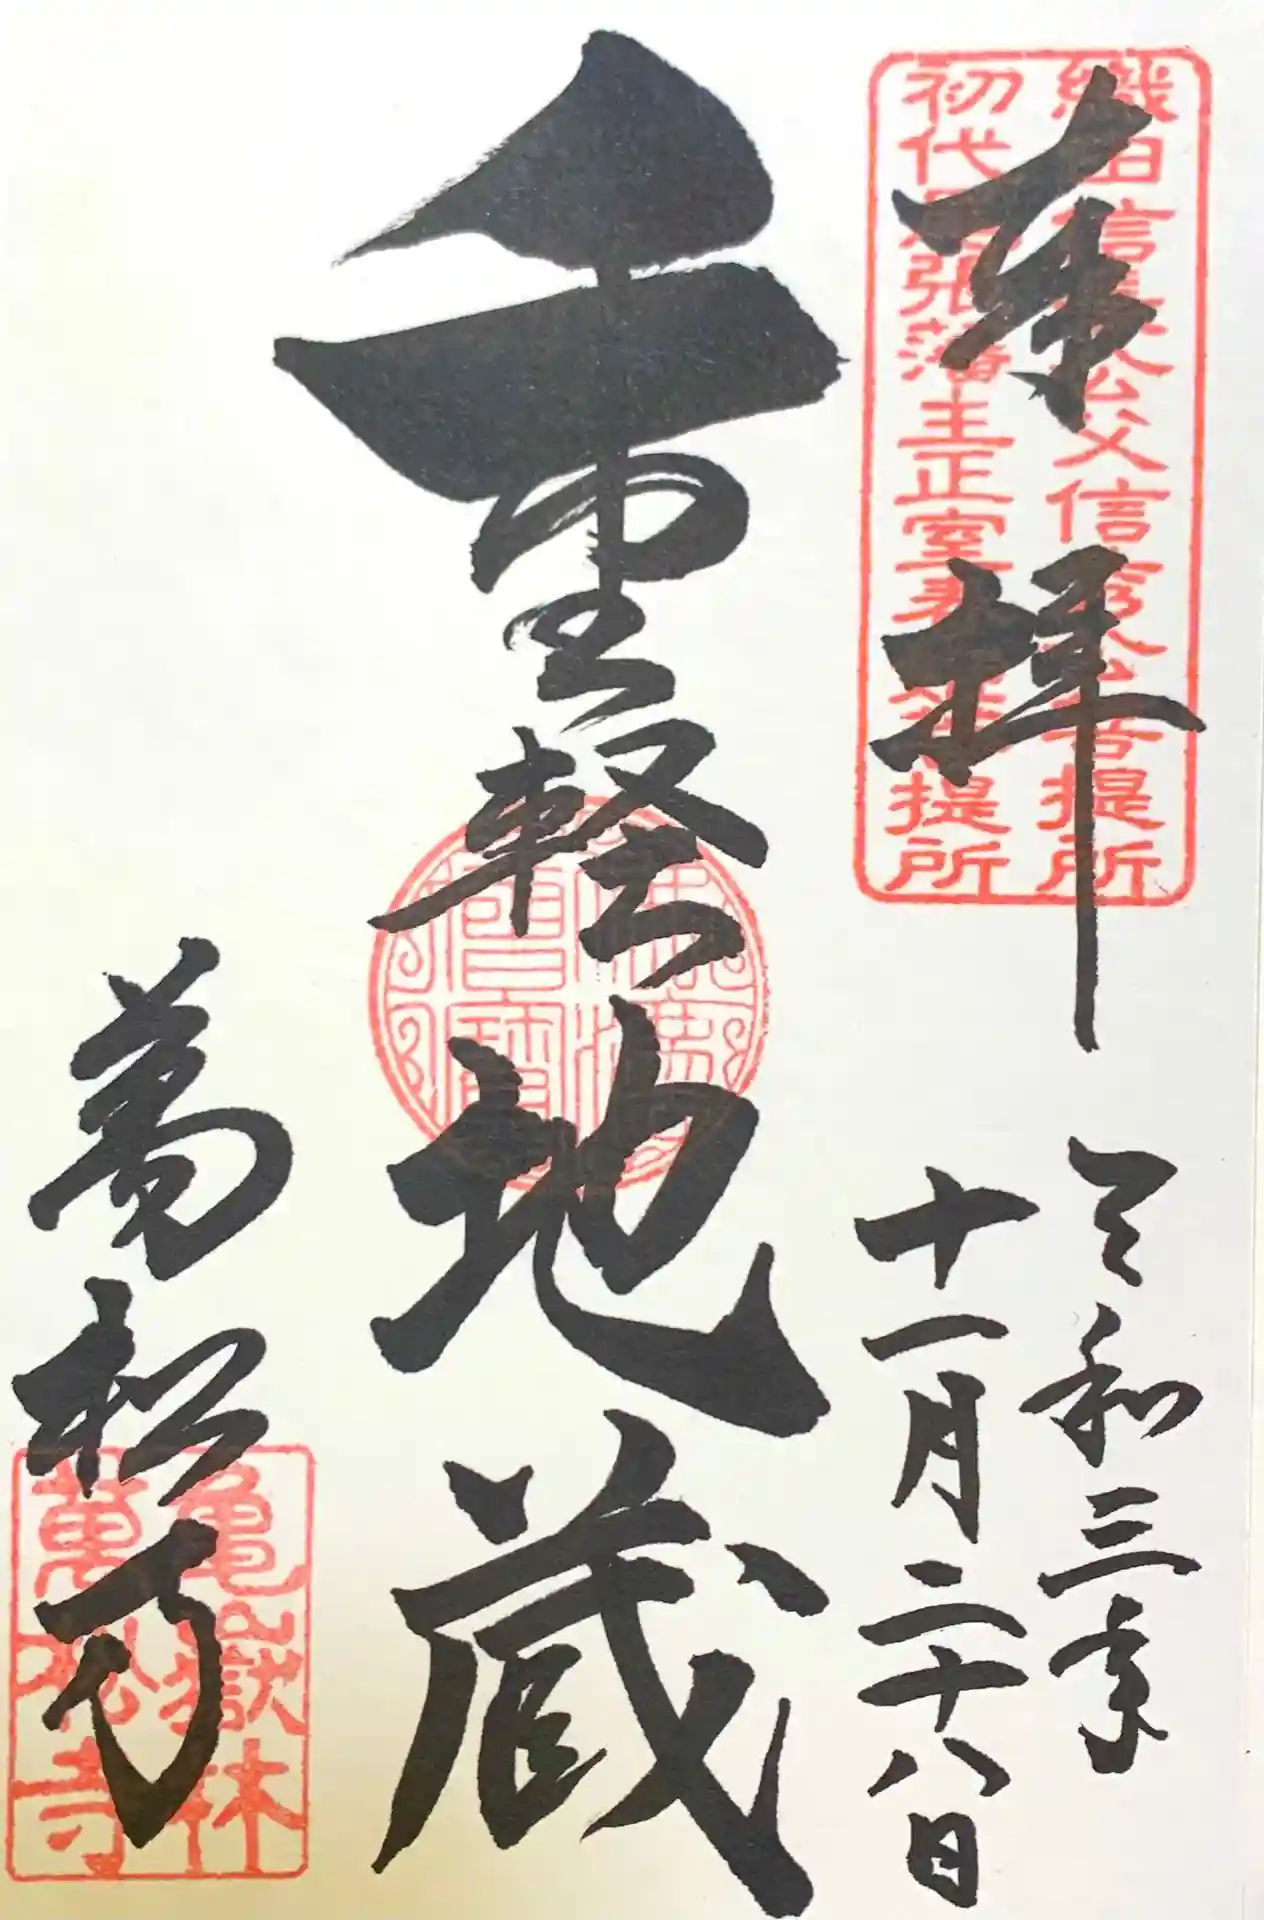 奉拝
織田信長公父信秀公菩提所
初代尾張藩主正室春姫菩提所
令和三年
十一月二十八日
重軽地蔵
佛法僧寶
萬松寺
亀嶽林
萬松寺